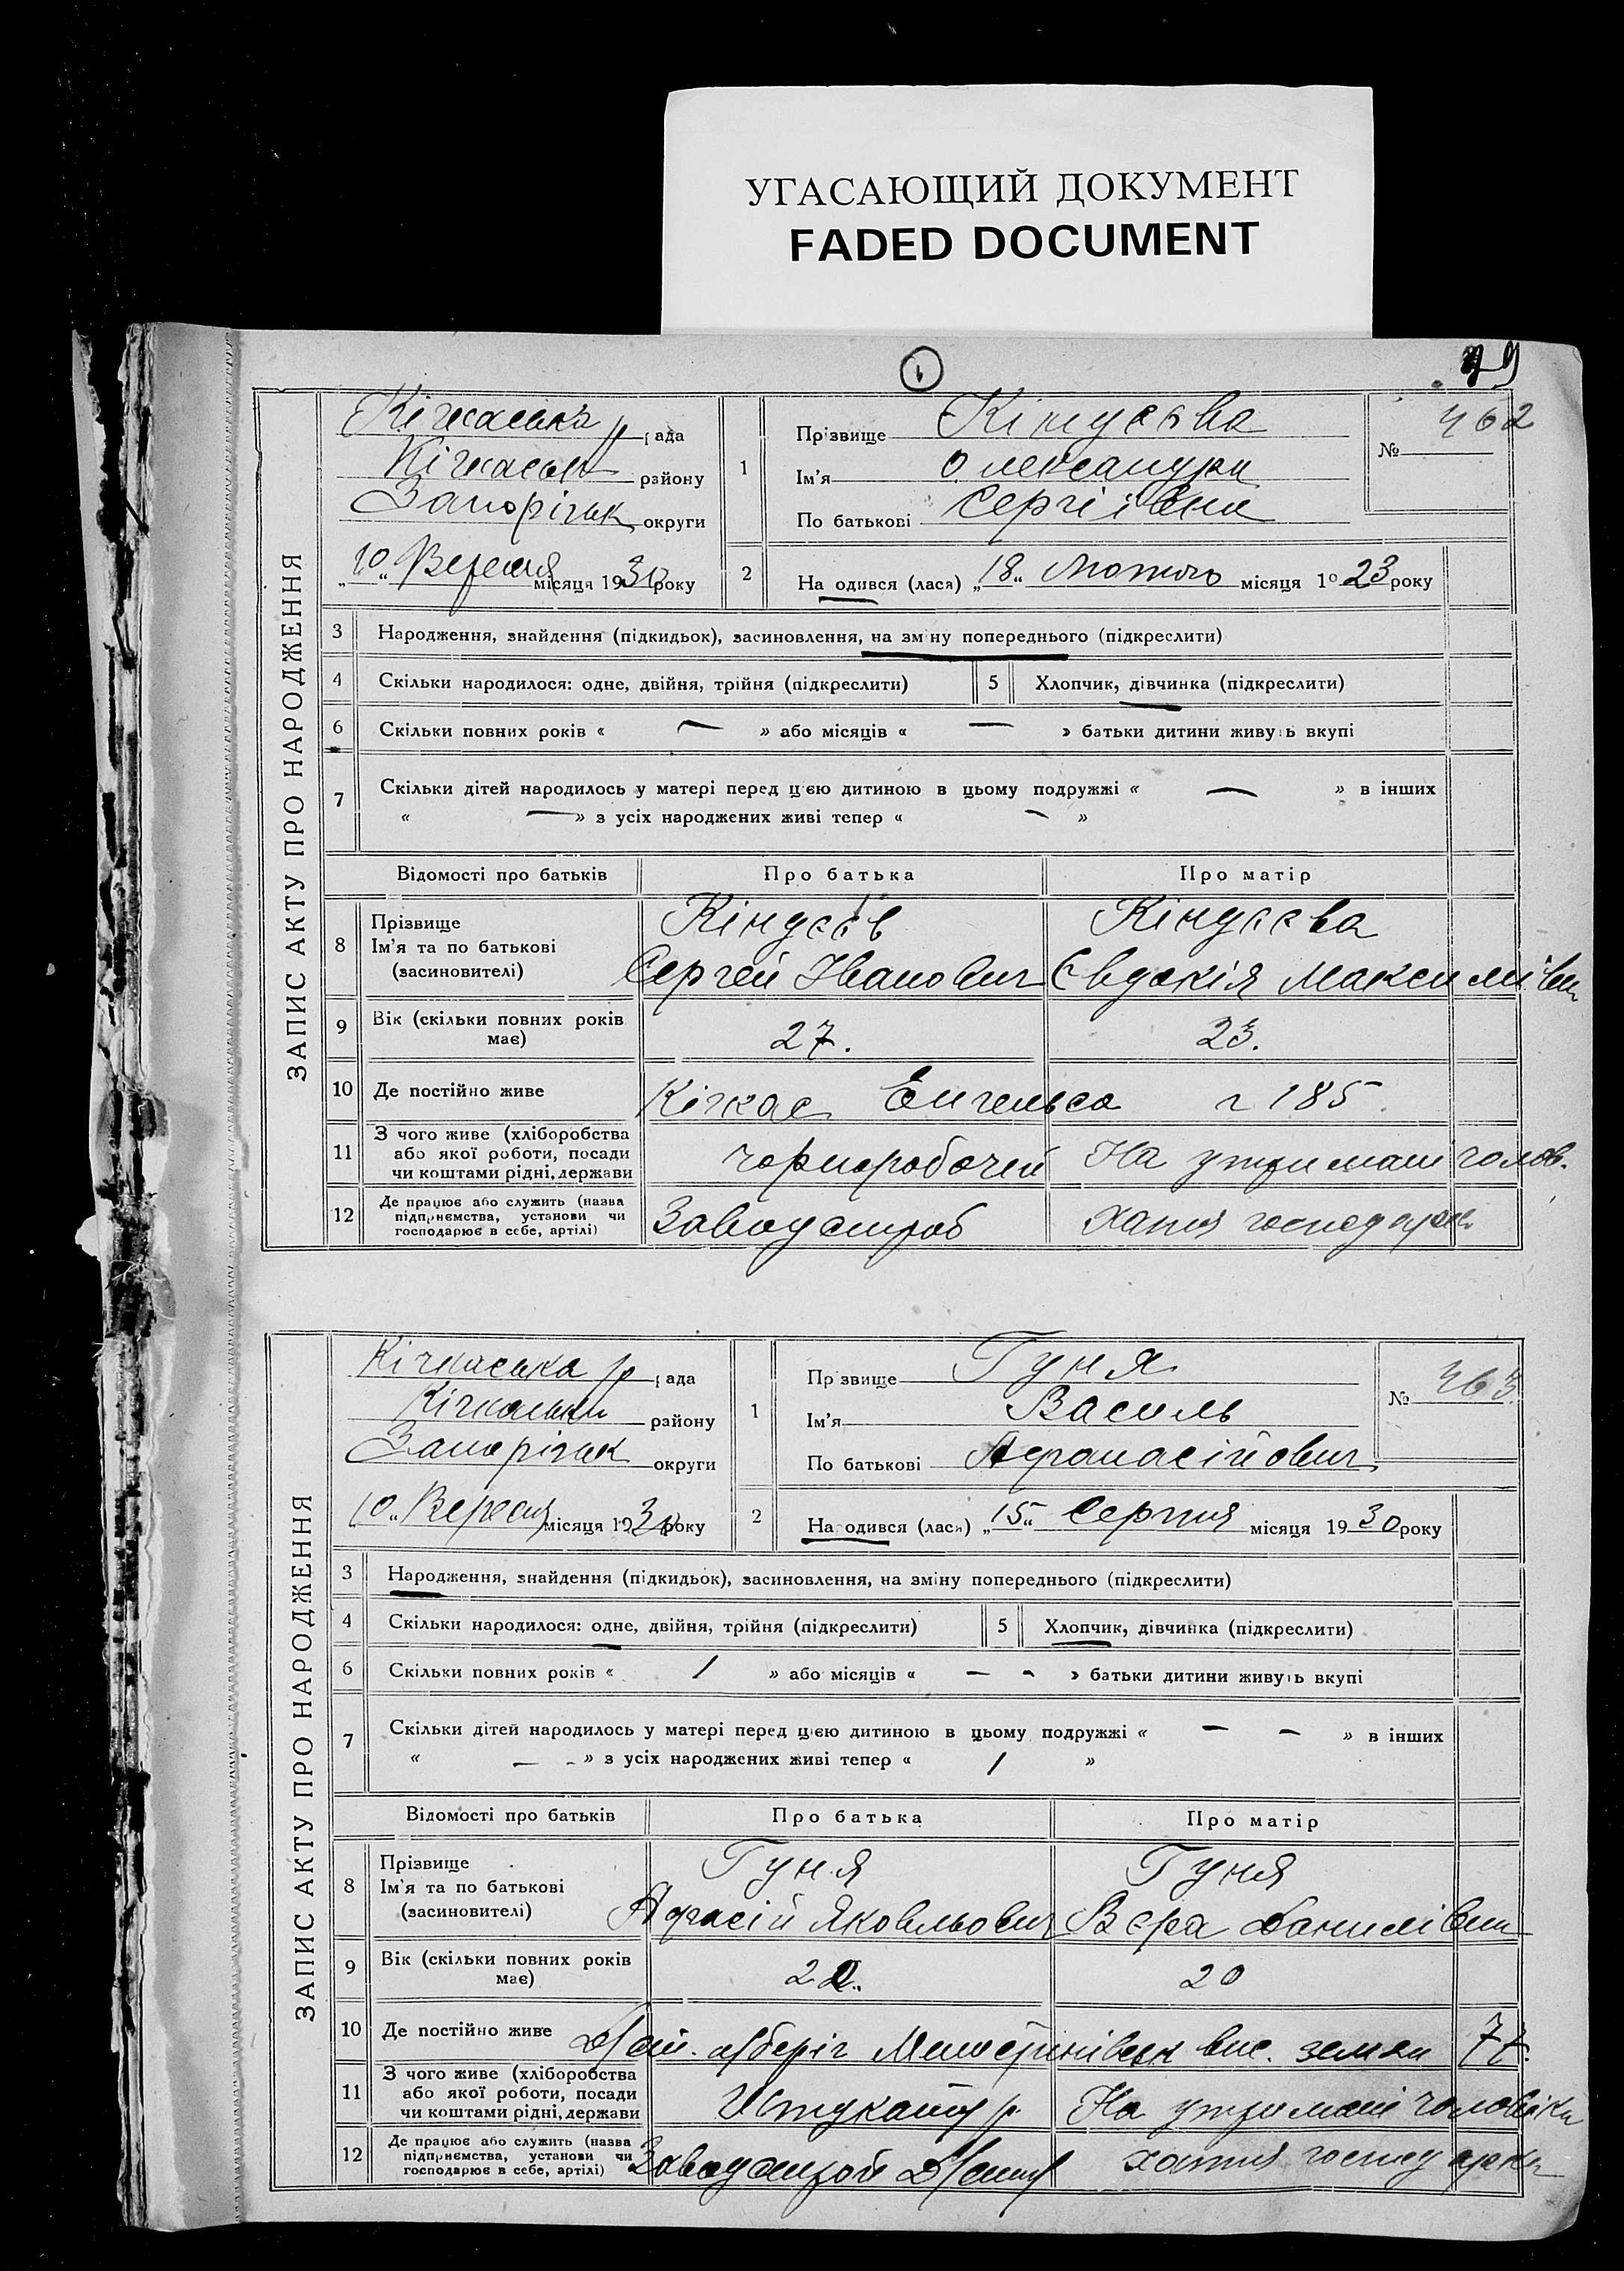 УГАСАЮЩИЙ ДОКУМЕНТ
FADED DOCUMENT
79
ЗАПИС АКТУ ПРО НАРОДЖЕННЯ
Кічкаська р рада
Кічкаськ району
Запоріжк округи
„10“ Вересня місяця 1930 року
1
Прізвище Кіндєєва
Ім'я Олександра
По батькові Сергіївна
№ 462
2 На одився (лася) „18“ Лютого місяця 1923 року
3 Народження, знайдення (підкидьок), засиновлення, на зміну попереднього (підкреслити)
4 Скільки народилося: одне, двійня, трійня (підкреслити) 5 Хлопчик, дівчинка (підкреслити)
6 Скільки повних років « — » або місяців « — » батьки дитини живуть вкупі
7 Скільки дітей народилось у матері перед цією дитиною в цьому подружжі « — » в інших
« — » з усіх народжених живі тепер « — »
Відомості про батьків Про батька Про матір
8 Прізвище
Ім'я та по батькові
(засиновителі)
Кіндєєв Кіндєєва
Сергей Іванович Євдокія Максимівн
9 Вік (скільки повних років має) 27. 23.
10 Де постійно живе Кічкас Енгельса 185
11 З чого живе (хліборобства
або якої роботи, посади
чи коштами рідні, держави
чорноробочей На утриман голов.
12 Де працює або служить (назва
підприємства, установи чи
господарює в себе, артілі)
Хатня господарк
ЗАПИС АКТУ ПРО НАРОДЖЕННЯ
Кічкаська р рада
Кічкаськ району
Запоріжк округи
10“ Вересня місяця 1930 року
1
Пр звище Гуня
Ім'я Василь
По батькові Афанасійович
№ 463
2 На одився (лася) „15“ Серпня місяця 1930 року
3 Народження, знайдення (підкидьок), засиновлення, на зміну попереднього (підкреслити)
4 Скільки народилося: одне, двійня, трійня (підкреслити) 5 Хлопчик, дівчинка (підкреслити)
6 Скільки повних років « 1 » або місяців « — - » батьки дитини живуть вкупі
7 Скільки дітей народилось у матері перед цією дитиною в цьому подружжі « — — » в інших
« — - » з усіх народжених живі тепер « 1 »
Відомості про батьків Про батька Про матір
8 Прізвище
Ім'я та по батькові
(засиновителі)
Гуня Гуня
Афасій Яковльович Вера Данилівн
9 Вік (скільки повних років має) 20
10 Де постійно живе беріг вис. землян 77.
11 З чого живе (хліборобства
або якої роботи, посади
чи коштами рідні, держави
Штукатур На утримані чоловіка
12 Де працює або служить (назва
підприємства, установи чи
господарює в себе, артілі)
хатня господарка